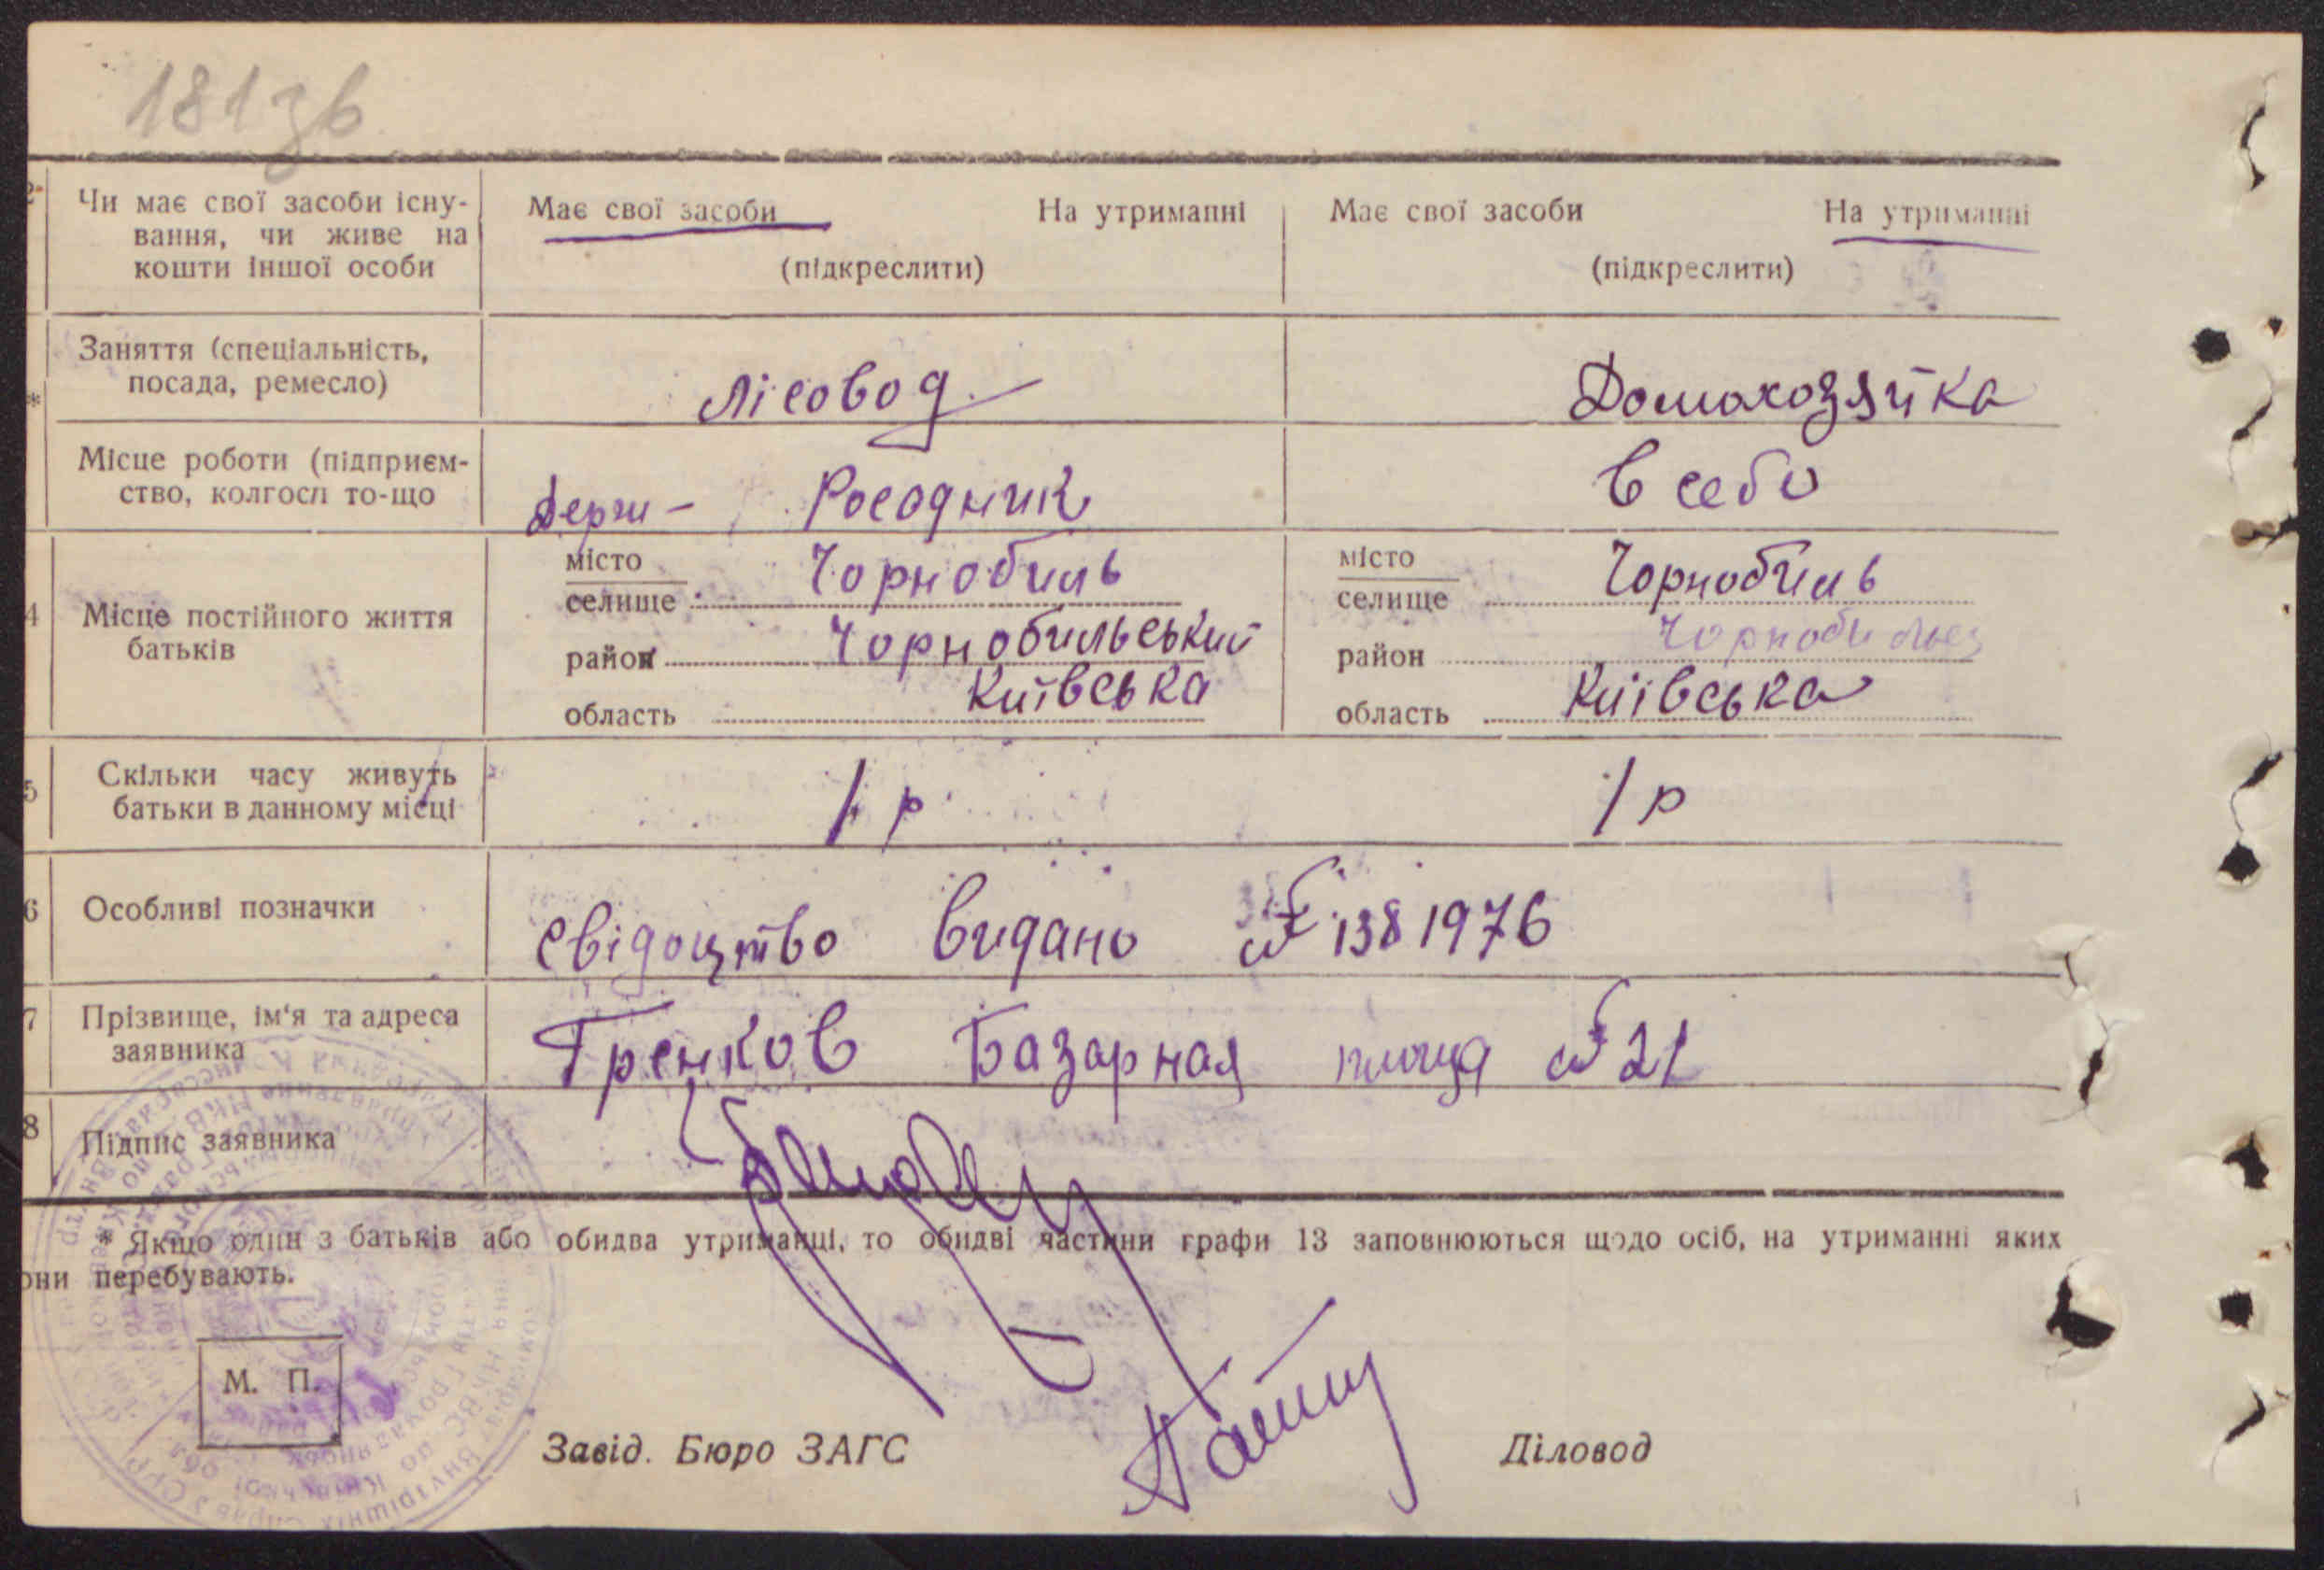 181зв
Чи має свої засоби існу-
вання, чи живе на
кошти іншої особи
Має свої засоби На утриманні
(підкреслити)
Має свої засоби На утриманні
(підкреслити)
Заняття (спеціальність,
посада, ремесло)
Лісовод
Домохозяйка
Місце роботи (підприєм-
ство, колгосп то-що
Держ- Росадник
В себе
4 Місце постійного життя
батьків
місто
селище Чорнобиль
район Чорнобильський
область Київська
місто
селище Чорнобиль
район
область Київська
5 Скільки часу живуть
батьки в данному місці
1 р
1 р
6 Особливі позначки
Свідоцтво видано № 1381976
7 Прізвище, ім'я та адреса
заявника
Гренков Базарная площа № 21
8 Підпис заявника
* Якщо один з батьків або обидва утриманці, то обидві частини графи 13 заповнюються щодо осіб, на утриманні яких
они перебувають.
М. П.
Завід. Бюро ЗАГС
Діловод